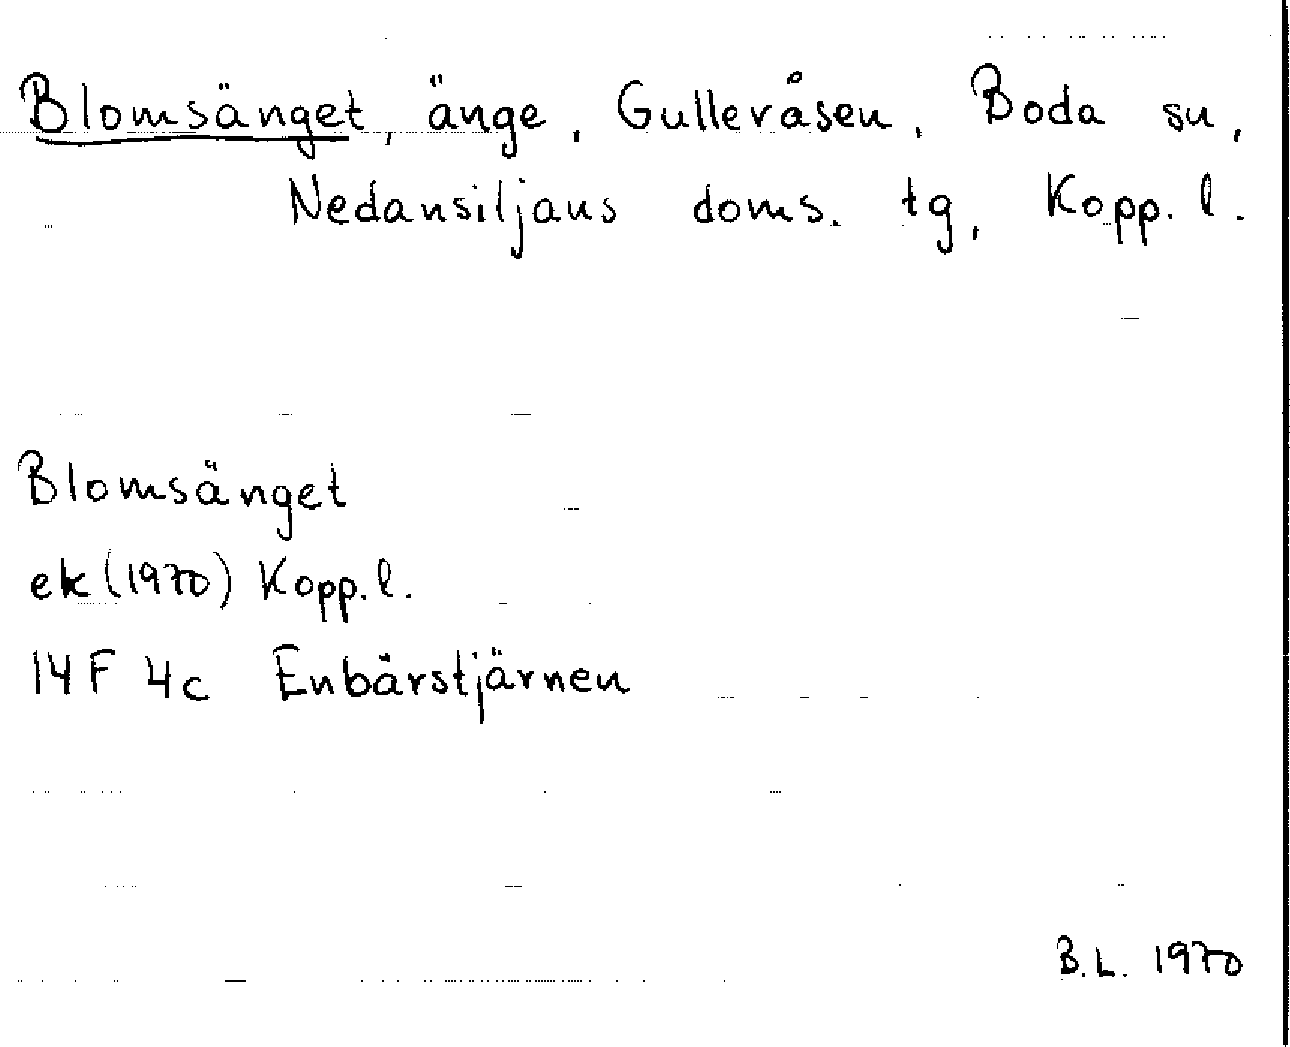 Blomsänget, änge, Gulleråsen, Boda sn,
Nedansiljans doms. tg, Kopp. l.
Blomsänget
ek (1970) Kopp. l.
14 F 4c Enbärstjärnen
B.L. 1970